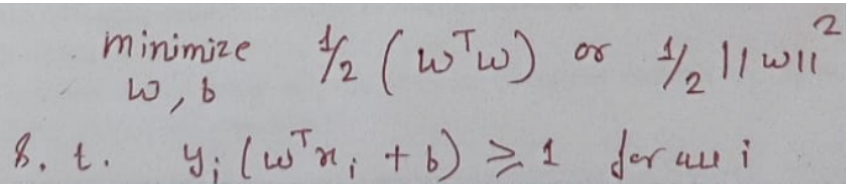 minimize ½ (wᵀw) or ½ ||w||²
w, b
s. t. yᵢ (wᵀxᵢ + b) ≥ 1 for all i